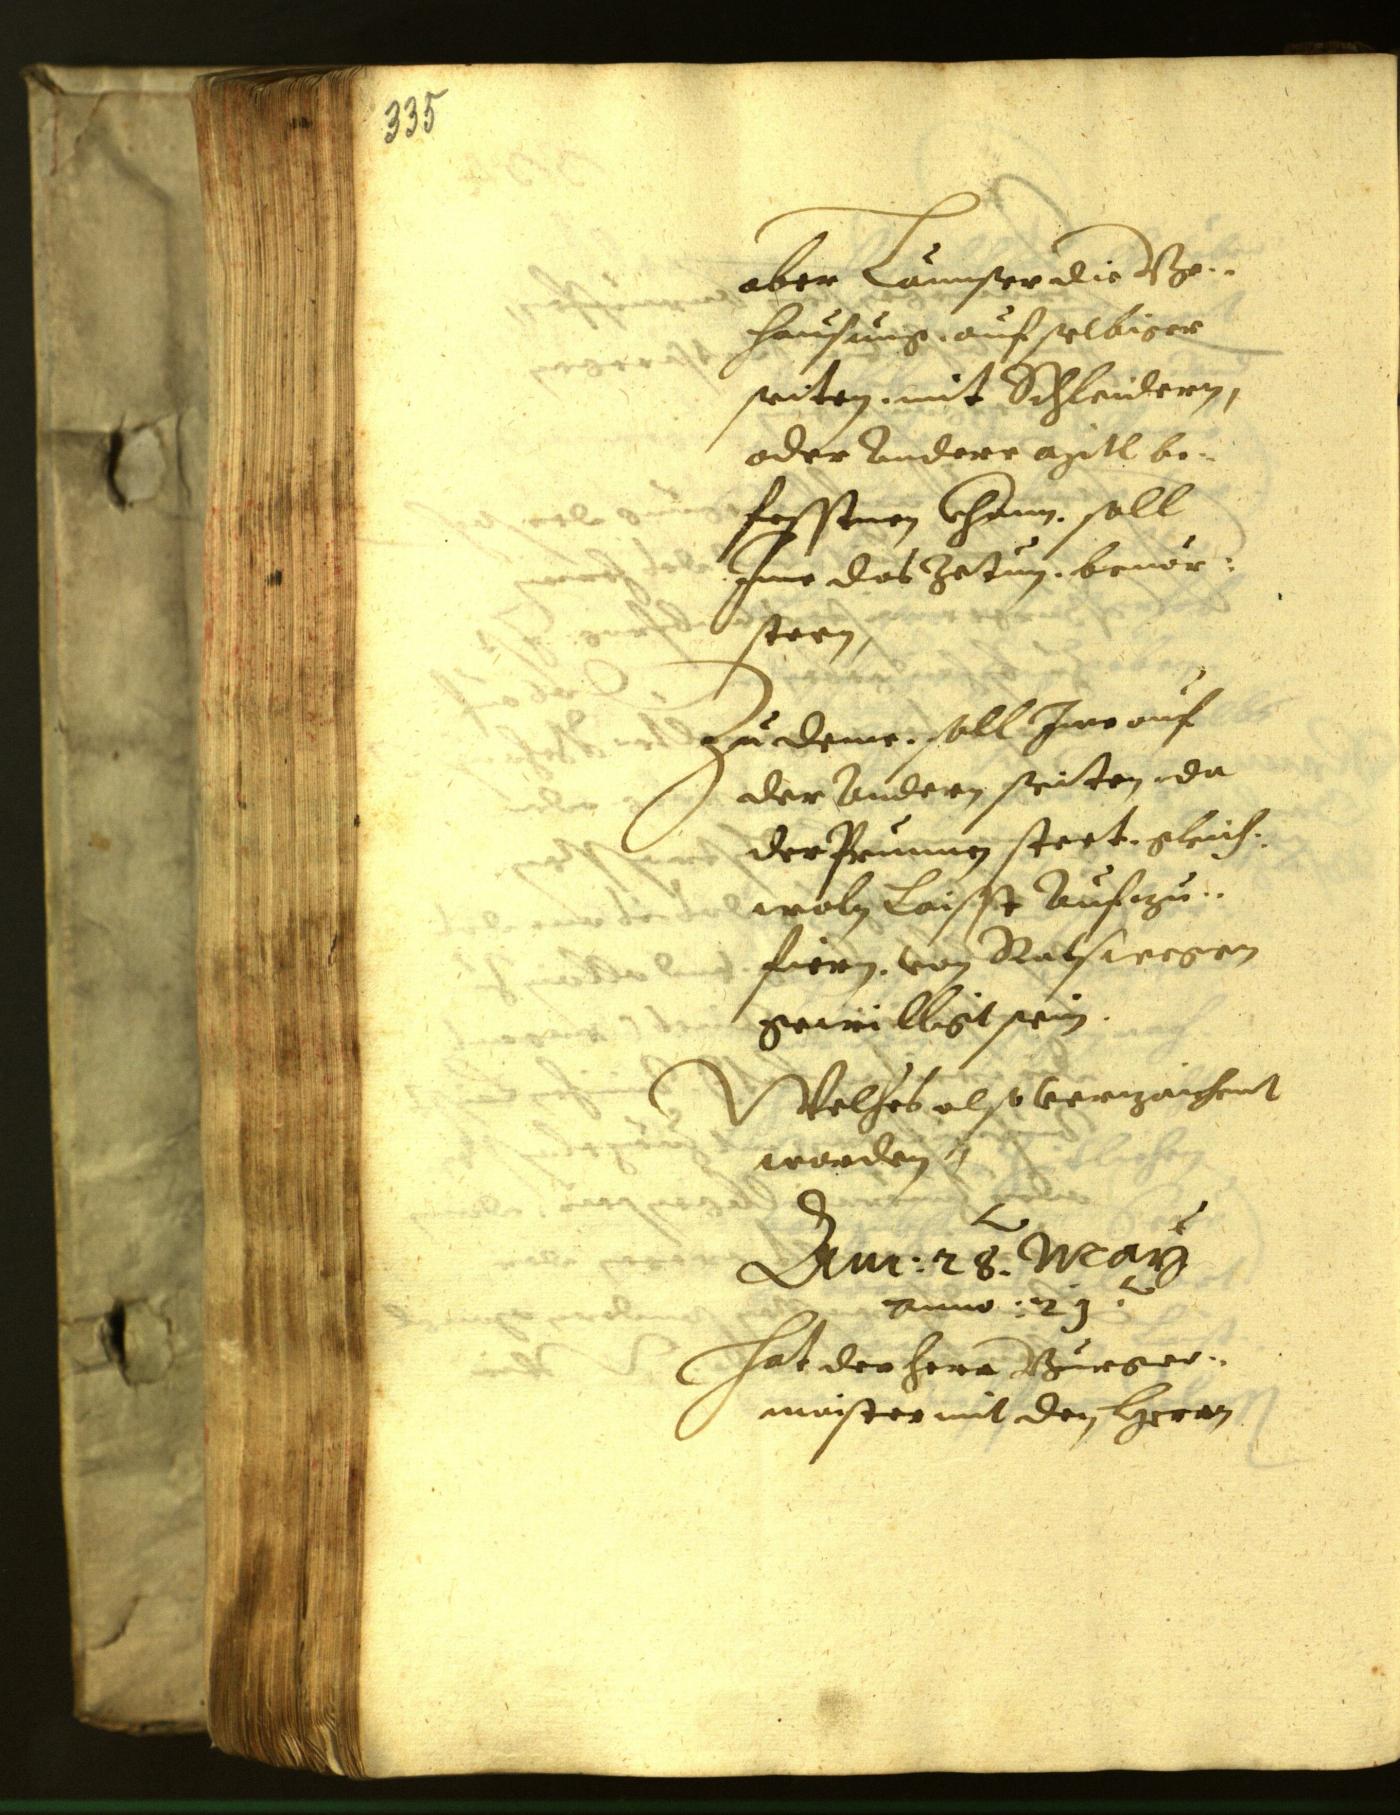 335
aber Launser die Be-
hausung auf selbiger
seiten mit Schleidern,
oder andere mitl be-
fesstnen khann, soll
Ime das Zetun bevor-
steen,
Zu deme soll Ime auf
der andern seiten, da
der Prunnen steet, gleich-
woln Laiste aufzu-
fiern, von Rats wegen
gewilligt sein.
Welches also verzaichent
worden
Am: 28. May
anno: 21.
Hat der herr Burger-
maister mit den Herrn